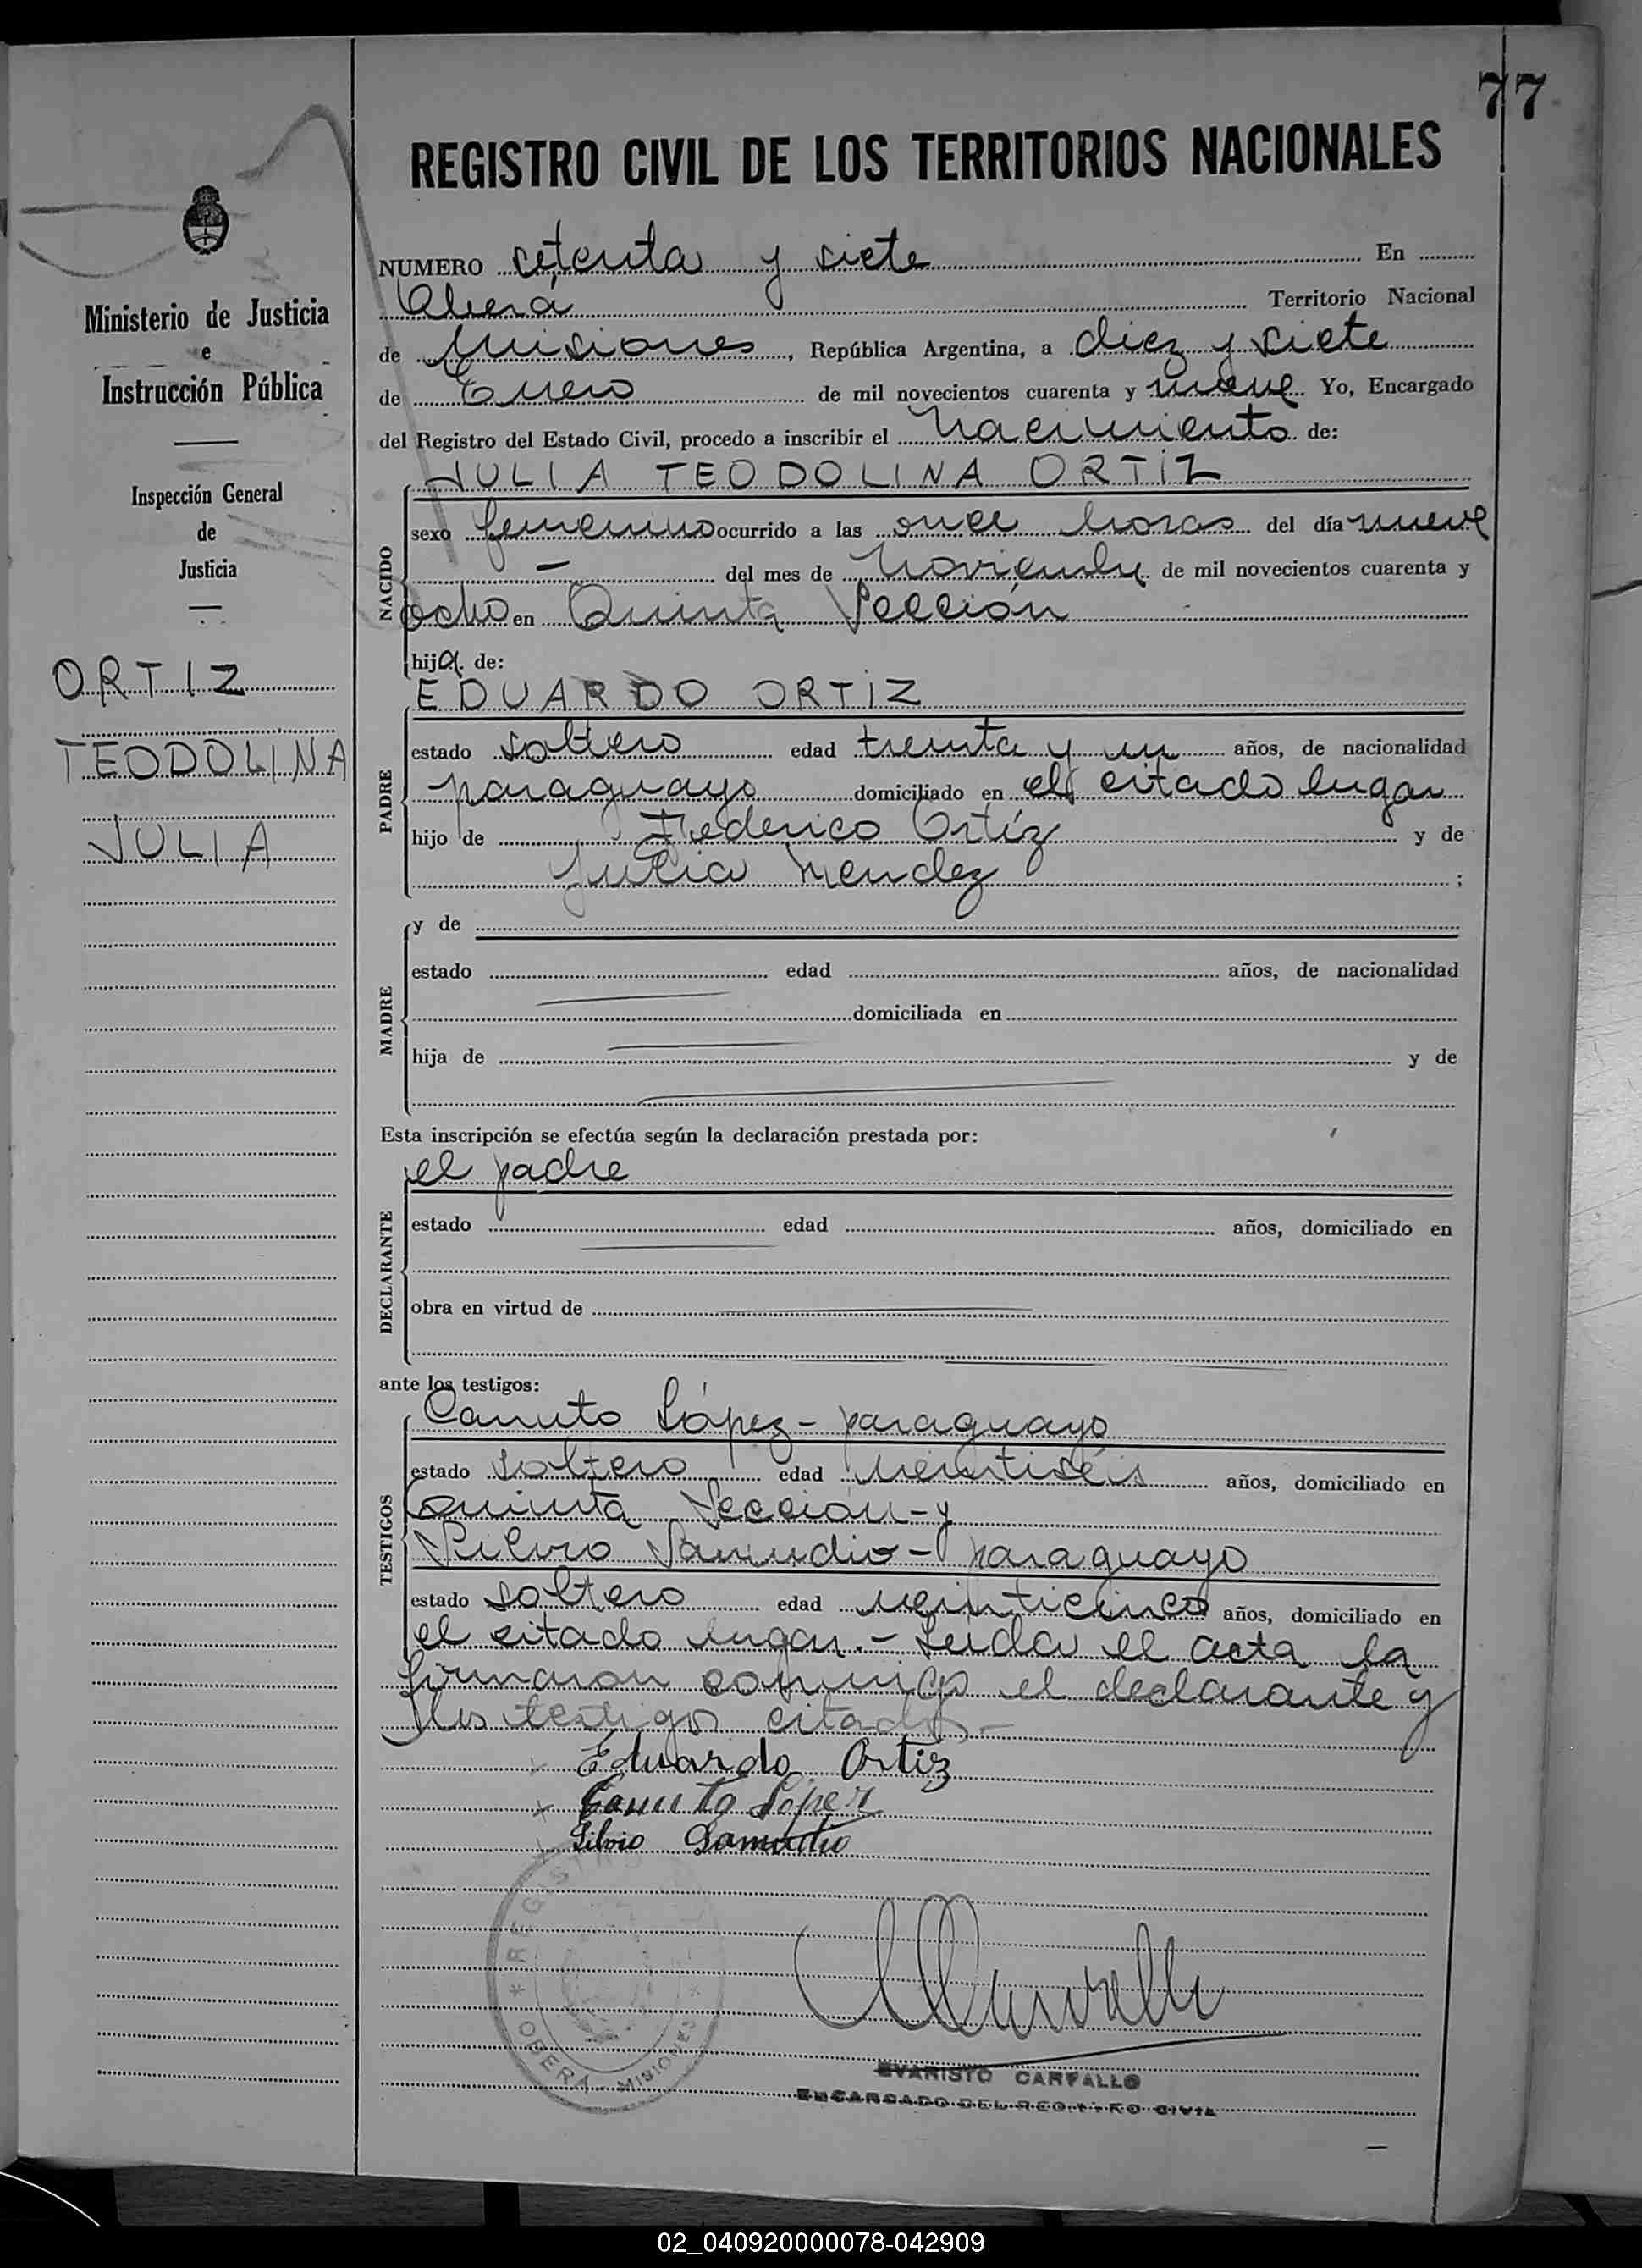 77
REGISTRO CIVIL DE LOS TERRITORIOS NACIONALES
NUMERO setenta y siete En
Oberá Territorio Nacional
de Misiones, República Argentina, a diez y siete
de Enero de mil novecientos cuarenta y nueve Yo, Encargado
del Registro del Estado Civil, procedo a inscribir el nacimiento de:
JULIA TEODOLINA ORTIZ
NACIDO
sexo femenino ocurrido a las once horas del día nueve
— del mes de noviembre de mil novecientos cuarenta y
ocho en Quinta Sección
hija de:
EDUARDO ORTIZ
PADRE
estado soltero edad treinta y un años, de nacionalidad
paraguayo domiciliado en el citado lugar
hijo de Federico Ortíz y de
Julia Mendez ;
MADRE
y de
estado edad años, de nacionalidad
domiciliada en
hija de y de
Esta inscripción se efectúa según la declaración prestada por:
el padre
DECLARANTE
estado edad años, domiciliado en
obra en virtud de
ante los testigos:
Canuto López - paraguayo
TESTIGOS
estado soltero edad veintiséis años, domiciliado en
Quinta Sección - y
Silvio Samudio - paraguayo
estado soltero edad veinticinco años, domiciliado en
el citado lugar.- Leida el acta la
firmaron conmigo el declarante y
los testigos citados.-
Eduardo Ortiz
Canuto López
Silvio Samudio
REGISTRO
OBERA - MISIONES
EVARISTO CARVALLO
ENCARGADO DEL REGISTRO CIVIL
Ministerio de Justicia
e
Instrucción Pública
Inspección General
de
Justicia
ORTIZ
TEODOLINA
JULIA
02_040920000078-042909